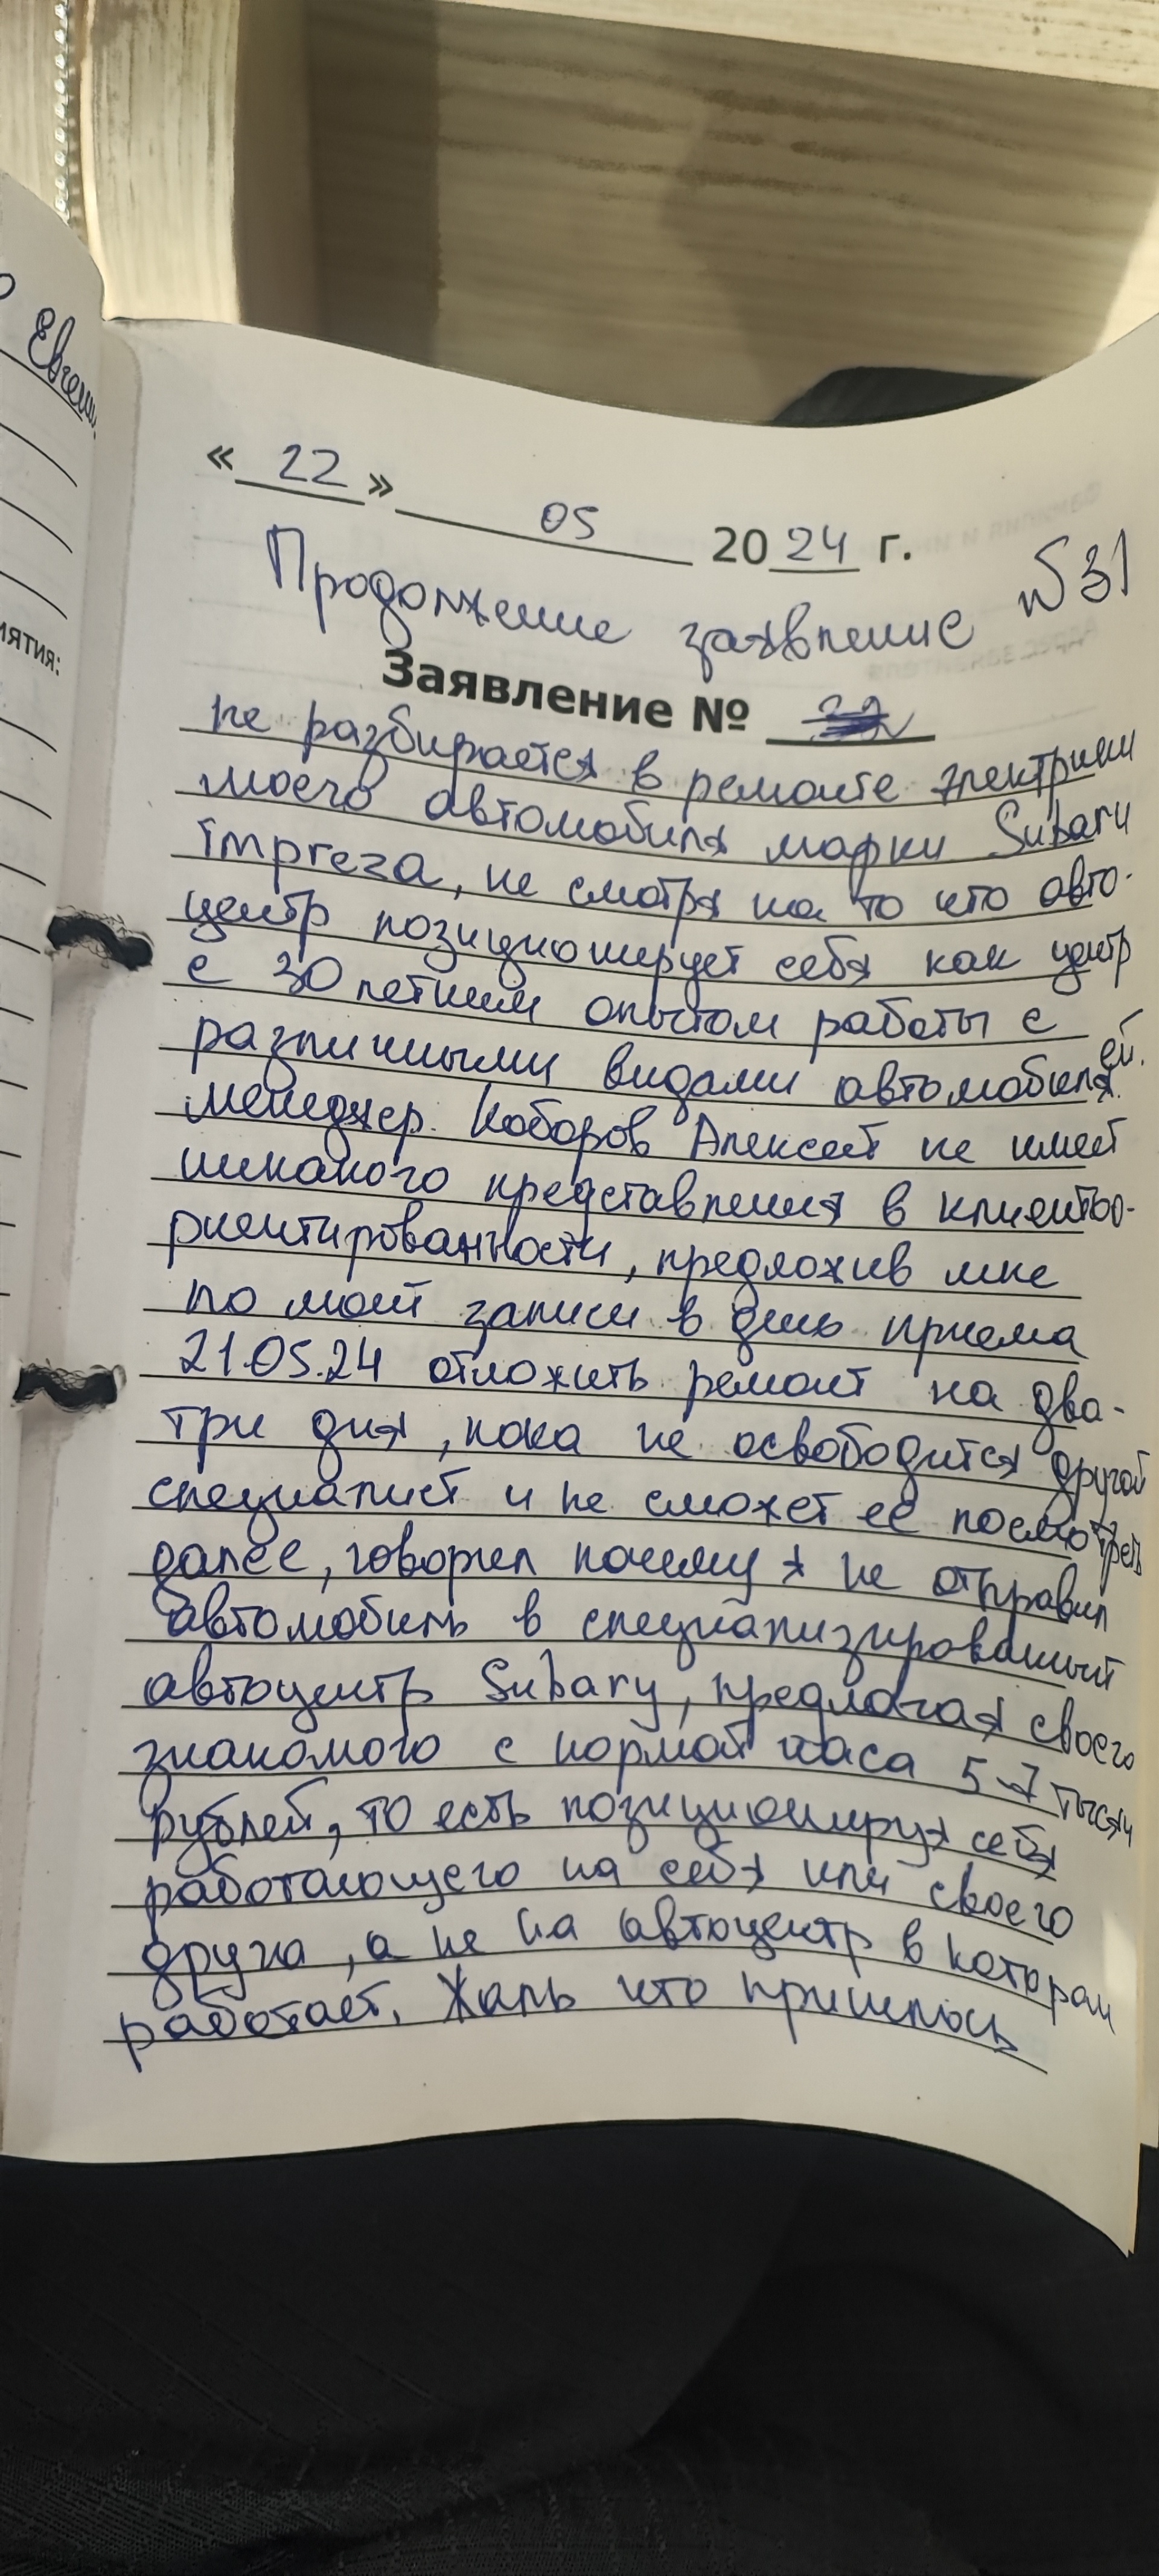 Евгени
ИЯТИЯ:
« 22 » 05 2024 г.
Продолжение заявление №31
Заявление №
не разбирается в ремонте электрики
моего автомобиля марки Subaru
impreza, не смотря на то что авто-
центр позиционирует себя как центр
с 30 летним опытом работы с
различными видами автомобилей.
менеджер Коборов Алексей не имеет
никакого представления в клиентоо-
риентированности, предложив мне
по моей записи в день приема
21.05.24 отложить ремонт на два-
три дня, пока не освободится другой
специалист и не сможет ее посмотреть
далее, говорил почему я не отправил
автомобиль в специализированный
автоцентр Subaru, предлагая своего
знакомого с нормой часа 5-7 тысяч
рублей, то есть позиционируя себя
работающего на себя или своего
друга, а не на автоцентр в котором
работает. Жаль что пришлось